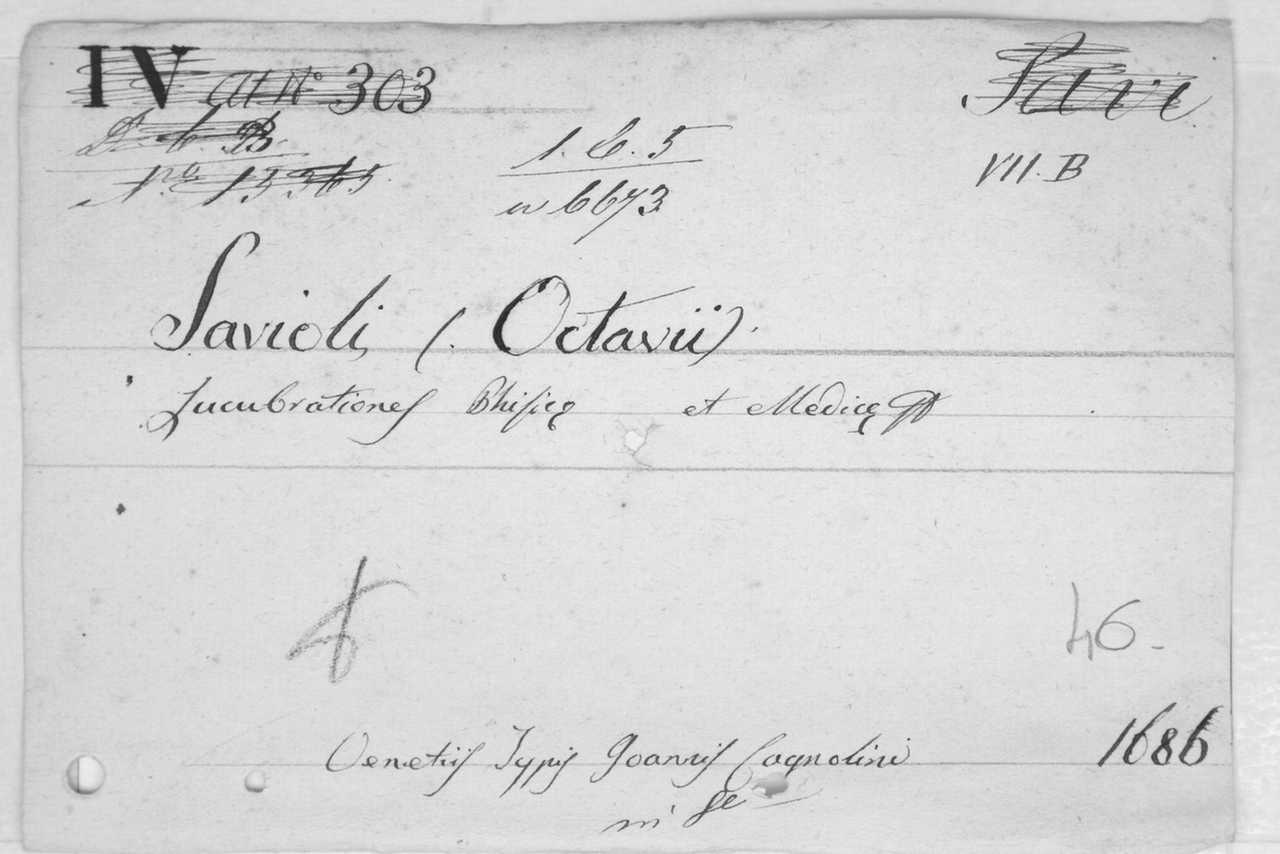 IV At N° 303
Savi
D. 6. B.
N.º 15365
1. 6. 5
n 6673
VII. B
Savioli (Octavii)
Lucubrationes Phisicę et Medicę
46.
Venetiis Typis Joannis Cagnolini 1686
in 8º